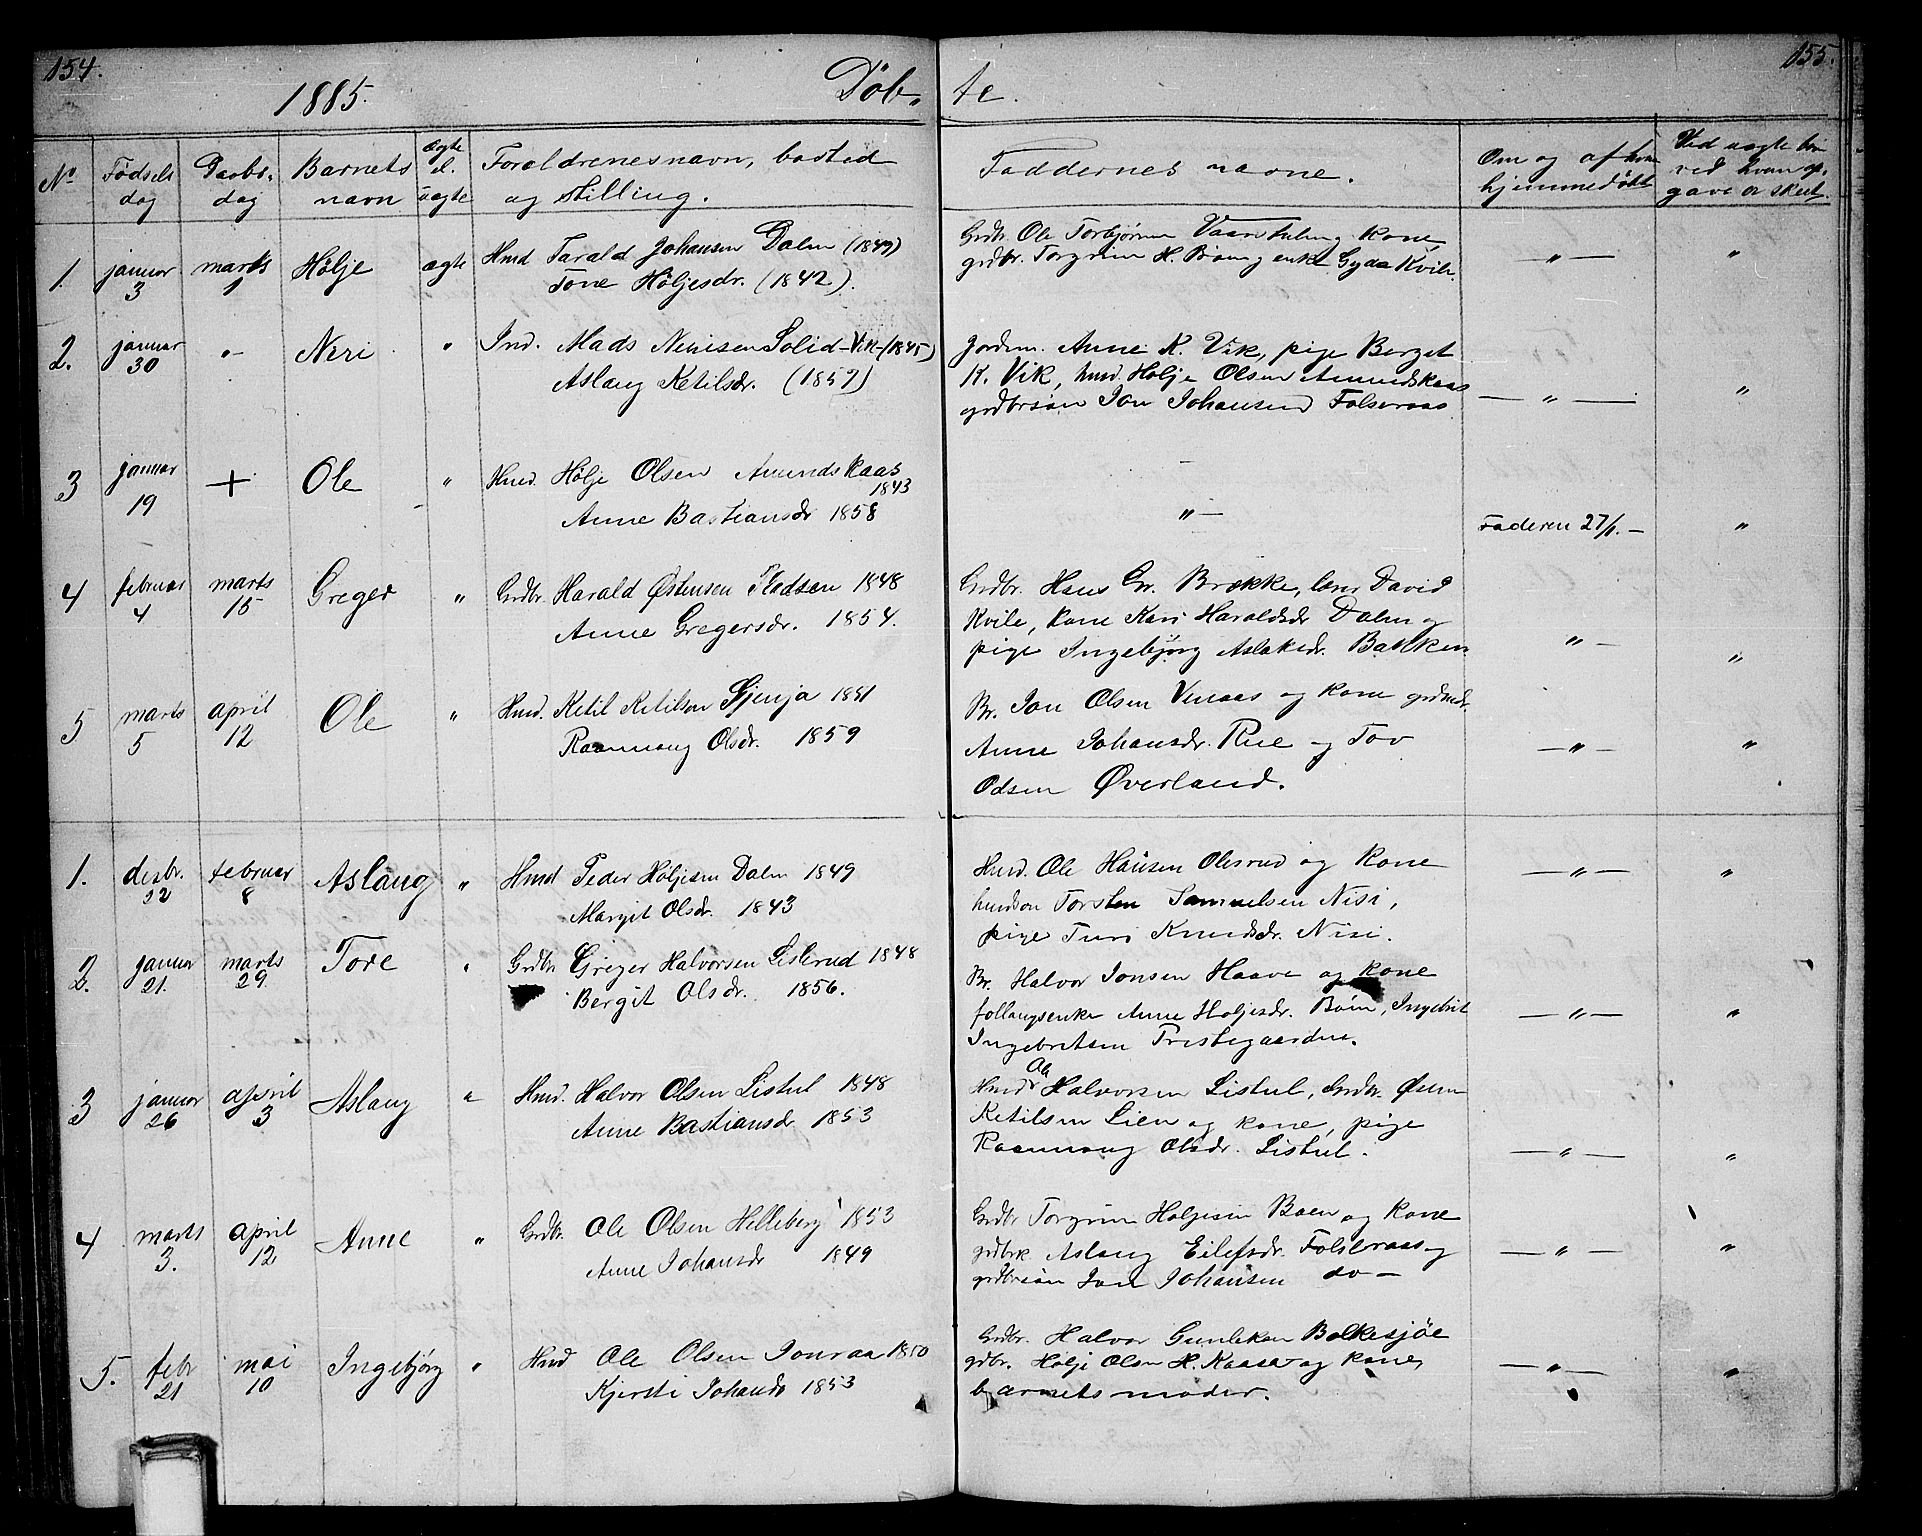 154.
1885.
Döb-
te.
155.
No
Fødsels
dag
Daabs-
dag
Barnets
navn
Ægte
el.
uægte
Forældrenes navn, bosted
og stilling.
Faddernes navne.
Om og af hvem
hjemmedøbt
Ved uægte børn
ved hvem op-
gave er skeet.
1. januar 3 marts 1 Hølje ægte Hmd Tarald Johansen Dalen (1849)
Tone Høljesdr. (1842).
Grdbr. Ole Torbjørnsen Vaanhulen og kone,
grdbr. Torgrim H. Bøen og enke Gyda Kvile.
—„— „
2. januar 30 "- Neri „ Ind. Mads Nerisen Solid-Vik-(1845)
Aslaug Ketilsdr. (1857)
Jordm. Anne K. Vik, pige Berget
K. Vik, hmd. Hølje Olsen Amundskaas
grdbrsøn Jon Johansen Folseraas
—„— „
3 januar 19 + Ole „ Hmd. Hølje Olsen Amundskaas
1843
Anne Bastiansdr 1858
„— Faderen 27/1.— „
4 februar 4 marts 15 Greger „ Grdbr. Harald Østensen Kladsen 1848
Anne Gregersdr. 1854.
Grdbr. Hans Gr. Brække, lens David
Kvile, kone Kari Haraldsdr Dalen og
pige Ingebjørg Aslaksdr. Bakken
„— „
5 marts 5 april 12 Ole „ Hmd. Ketil Ketilsen Gjenja 1841
Raamaug Olsdr. 1859
Br. Jon Olsen Vinaas og kone grdmdr.
Anne Johansdr. Rue og Tov
Odsen Øverland.
—„— „
1. desbr. 22 februar 8 Aslaug „ Hmd Peder Høljesen Dalen 1849
Margit Olsdr. 1843
Hmd. Ole Hansen Olesrud og kone
hmdson Torsten Samuelsen Nisi,
pige Turi Knudsdr. Nisi.
—„— „
2. januar 21. marts 29. Tore „ Grdbr Greger Halvorsen Lislerud 1848
Bergit Olsdr. 1856.
Br. Halvor Jonsen Haave og kone
follaugsenke Anne Høljesdr. Bøen, Ingebrit
Ingebretsen Prestegaarden.
—„— „
3 januar 26 april 3 Aslaug „ Hmd. Halvor Olsen Listul 1848
Anne Bastiansdr 1853
Hmd Ole Halvorsen Listul, Grdbr. Østen
Ketilsen Lien og kone, pige
Raamaug Olsdr. Listul.
—„— „
4 marts 3. april 12 Anne „ Grdbr. Ole Olsen Helleberg 1853
Anne Johansdr 1849
Grdbr Torgrim Høljesen Boen og kone
grdbrk Aslaug Eilefsdr. Folseraas og
grdbrsøn Jon Johansen do—
—„— „
5. febr 21 mai 10 Ingebjørg „ Hmd Ole Olsen Jonraa 1850
Kjersti Johansdr 1853
Grdbr. Halvor Gunleksen Bolkesjöe
grdbr. Hølje Olsen H. Kaasa og kone,
barnets moder.
—„— „